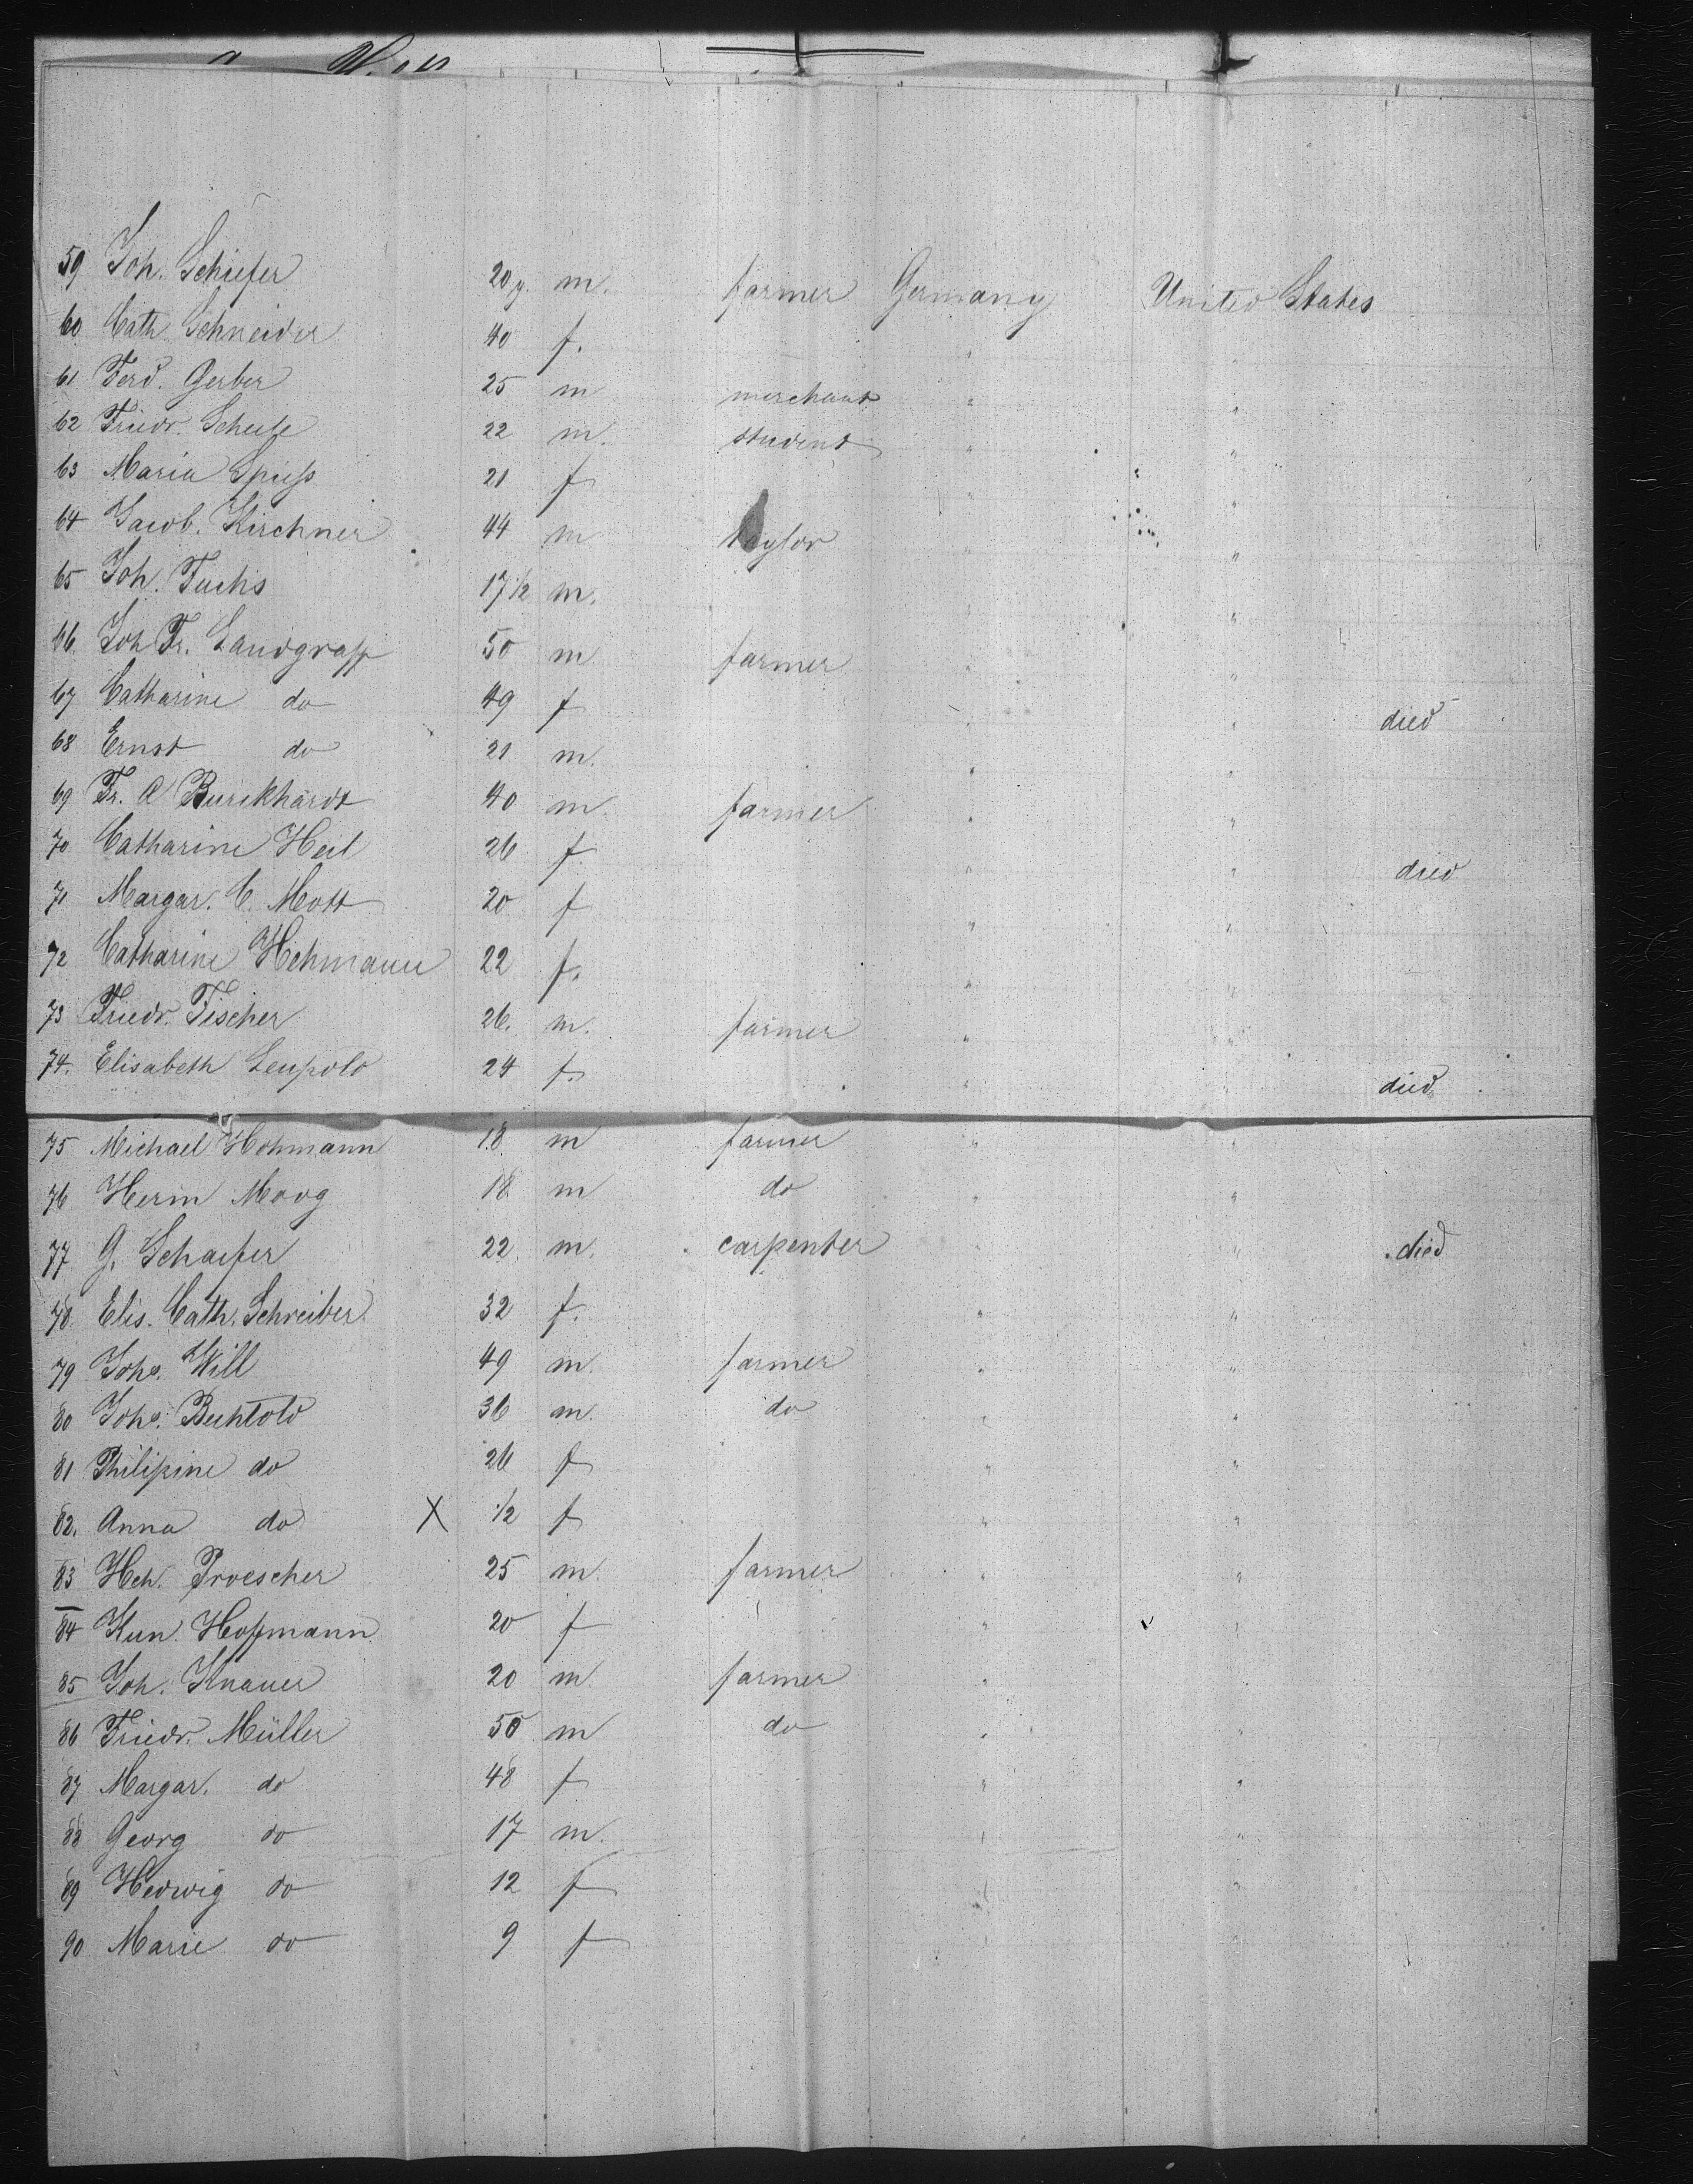 59 Joh. Schiefer 20 y. m. farmer Germany United States
60 Cath Schneider 40 f. " "
61 Ferd. Gerber 25 m merchant " "
62 Friedr. Scheele 22 m. student " "
63 Maria Spieß 21 f " "
64 Jacob. Kirchner 44 m taylor " "
65 Joh. Fuchs 17 1/2 m. " "
66 Joh Fr. Landgraff 50 m farmer " "
67 Catharine do 49 f " " died
68 Ernst do 21 m. " "
69 Fr. A Burckhardt 40 m. farmer " "
70 Catharine Heil 26 f. " " died
71 Margar. C. Mott 20 f " "
72 Catharine Hehmann 22 f. " "
73 Friedr. Fischer 26. m. farmer " "
74. Elisabeth Leupold 24 f. " " died
75 Michael Hohmann 18 m farmer " "
76 Herm Moog 18 m do " "
77 G. Schaefer 22 m. carpenter " " died
78 Elis. Cath. Schreiber 32 f. " "
79 Johs. Will 49 m. farmer " "
80 Johs. Bechtold 36 m. do " "
81 Philipine do 26 f " "
82. Anna do X 1/2 f " "
83 Hch. Proescher 25 m. farmer " "
84 Kun. Hoffmann 20 f " "
85 Joh. Knauer 20 m. farmer "
86 Friedr. Müller 50 m do " "
87 Margar. do 48 f " "
88 Georg do 17 m. " "
89 Hedwig do 12 f " "
90 Marie do 9 f " "